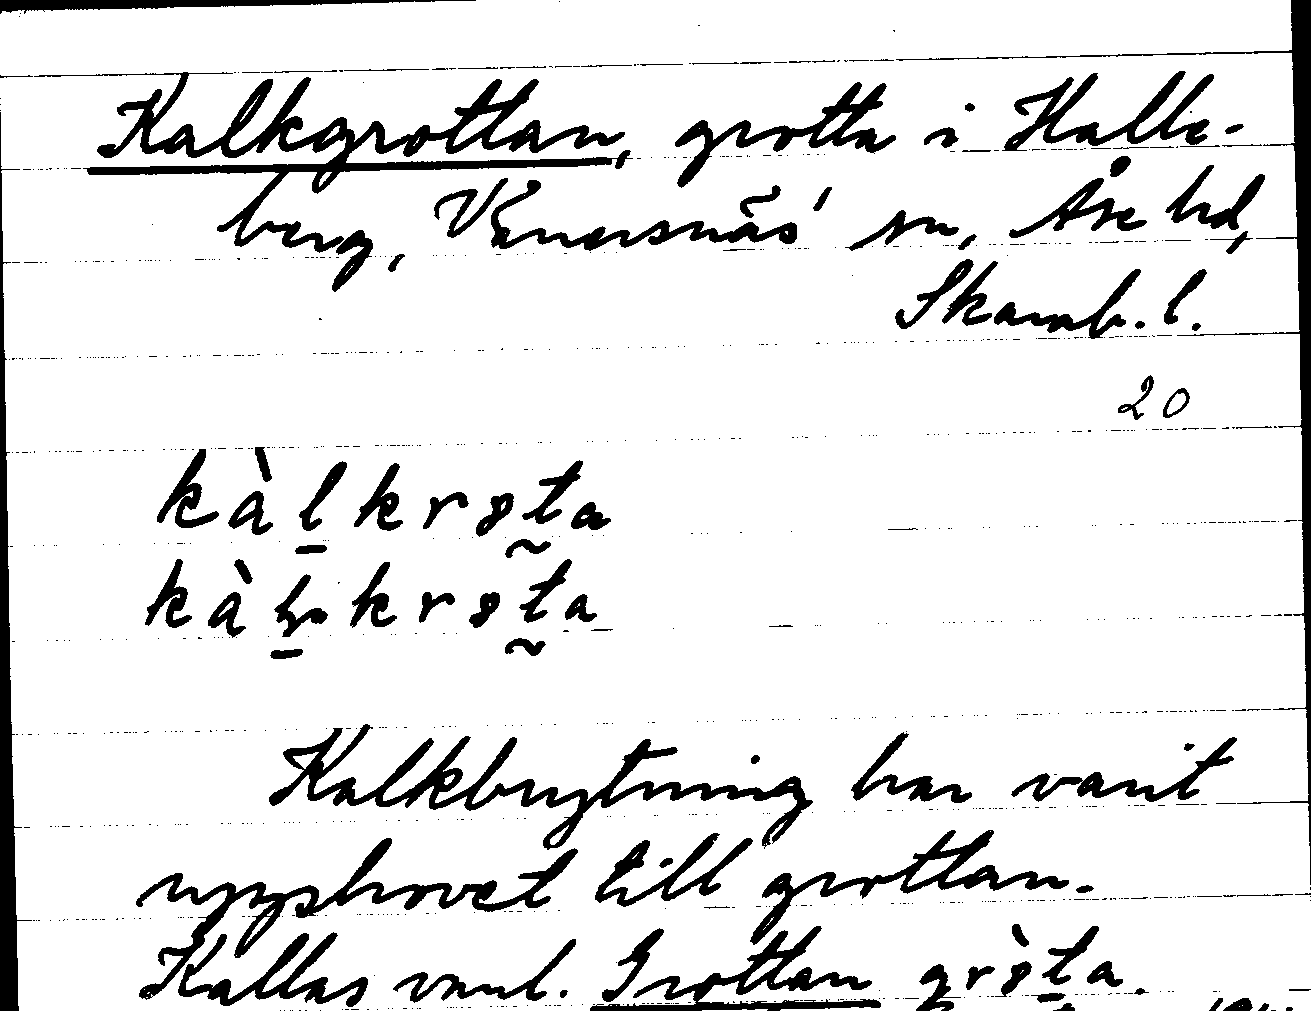 Kalkgrottan, grotta i Halle-
berg, Vänersnäs' sn, Åse hd,
Skarab. l.
20
kàl̠krɞt̰a
kàl̠krɞt̰a
Kalkbrytning har varit
upphovet till grottan.
Kallas vanl. Grottan grɞ̀ta.